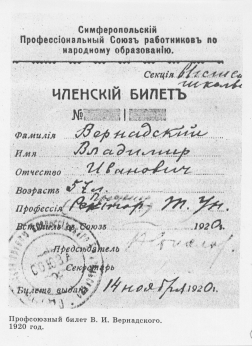 Симферопольскій
Профессіональный Союзъ работниковъ по
народному образованію.
Секція Высшей
школы
ЧЛЕНСКІЙ БИЛЕТЪ
№
Фамилія Вернадский
Имя Владимир
Отчество Иванович
Возрастъ 57 л.
Профессія Ректор Т. Ун.
Вступилъ въ Союзъ 1920г.
Предсѣдатель
Секретарь
Билетъ выданъ 14 ноября 1920г.
Профсоюзный билет В. И. Вернадского.
1920 год.